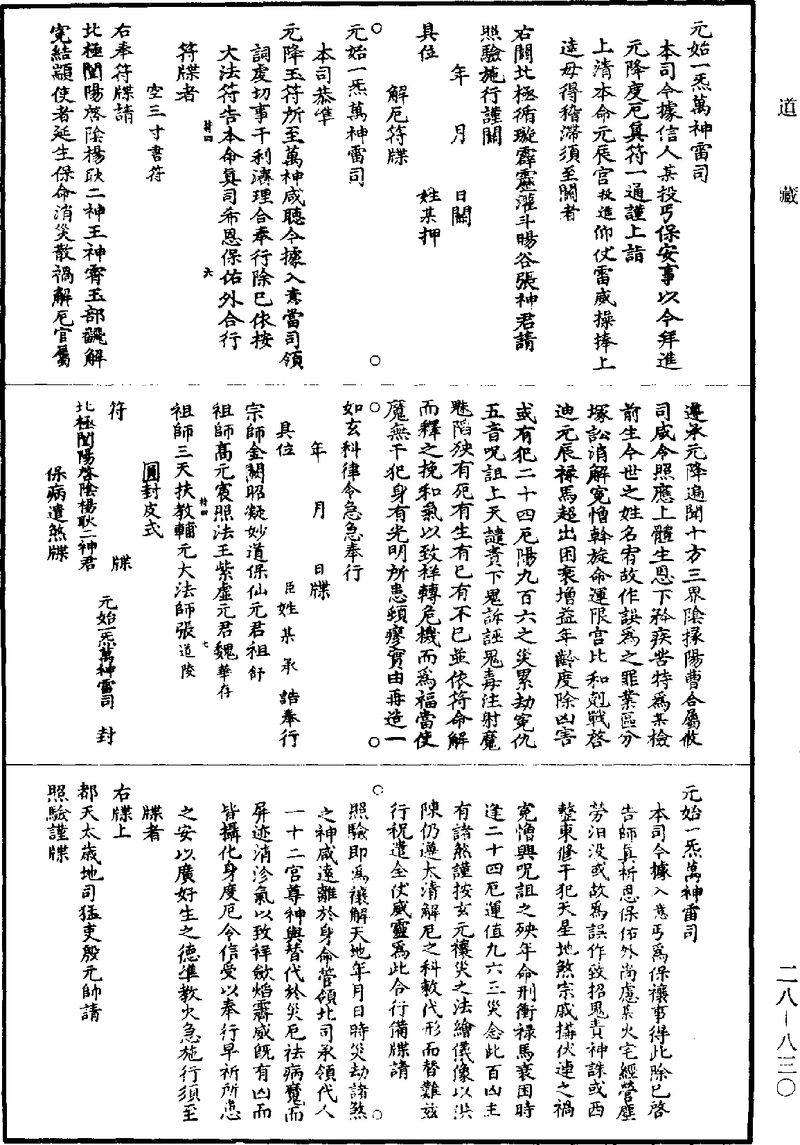 道藏
元始一炁萬神雷司
本司今據信人某投丐保安事以今拜進
元降度厄真符一通謹上詣
上清本命元辰官投進仰仗雷威操捧上
達毋得稽滯須至關者
右關北極循璇霹靂灌斗暘谷張神君請
照驗施行謹關
年 月 日關
具位 姓某押
解厄符牒
元始一炁萬神雷司
本司恭準
元降玉符所至萬神咸聽今據入意當司領
詞虔切事干利濟理合奉行除已依按
大法符告本命真司希恩保佑外合行
符牒者
空三寸書符
右奉符牒請
北極閶陽啓陰楊耿二神王神霄玉部翻解
冤結顯使者延生保命消災散禍解厄官屬
遵承元降遍聞十方三界陰掾陽曹合屬攸
司咸令照應上體生恩下矜疾苦特為某檢
前生今世之姓名宥故作誤為之罪業區分
塚訟消解冤憎斡旋命運限宮比和剋戰啓
迪元辰祿馬超出困衰增益年齡度除凶害
或有犯二十四厄陽九百六之災累劫冤仇
五音呪詛上天譴責下鬼訴誣鬼毒注射魔
魅陷殃有死有生有已有不已並依符命解
而釋之挽和氣以致祥轉危機而為福當使
魔無干犯身有光明所患頓瘳實由再造一
如玄科律令急急奉行
年 月 日牒
具位 臣姓某承誥奉行
宗師金闕昭凝妙道保仙元君祖舒
祖師高元宸照法王紫虛元君魏華存
祖師三天扶教輔元大法師張道陵
圓封皮式
符 牒 元始一炁萬神雷司 封
北極閶陽啓陰楊耿二神君
保病遣煞牒
元始一炁萬神雷司
本司今據入意丐為保禳事得此除已啓
告師真祈恩保佑外尚慮某火宅經營塵
勞汨沒或故為誤作致招鬼責神誅或西
整東修干犯天星地煞宗戚搆伏連之禍
冤憎興呪詛之殃年命刑衝祿馬衰困時
逢二十四厄運值九六三災念此百凶主
有諸煞謹按玄元禳災之法繪儀像以洪
陳仍遵太清解厄之科敷代形而替難茲
行祝遣全仗威靈為此合行備牒請
照驗即為禳解天地年月日時災劫諸煞
之神咸遠離於身命管領北司承領代人
一十二宮尊神與替代終災厄祛病魔而
屏迹消沴氣以致祥歛焰霽威既有凶而
皆攝化身度厄令信受以奉行早祈所患
之安以廣好生之德準教火急施行須至
牒者
右牒上
都天太歲地司猛吏殷元帥請
照驗謹牒
二八—八三〇